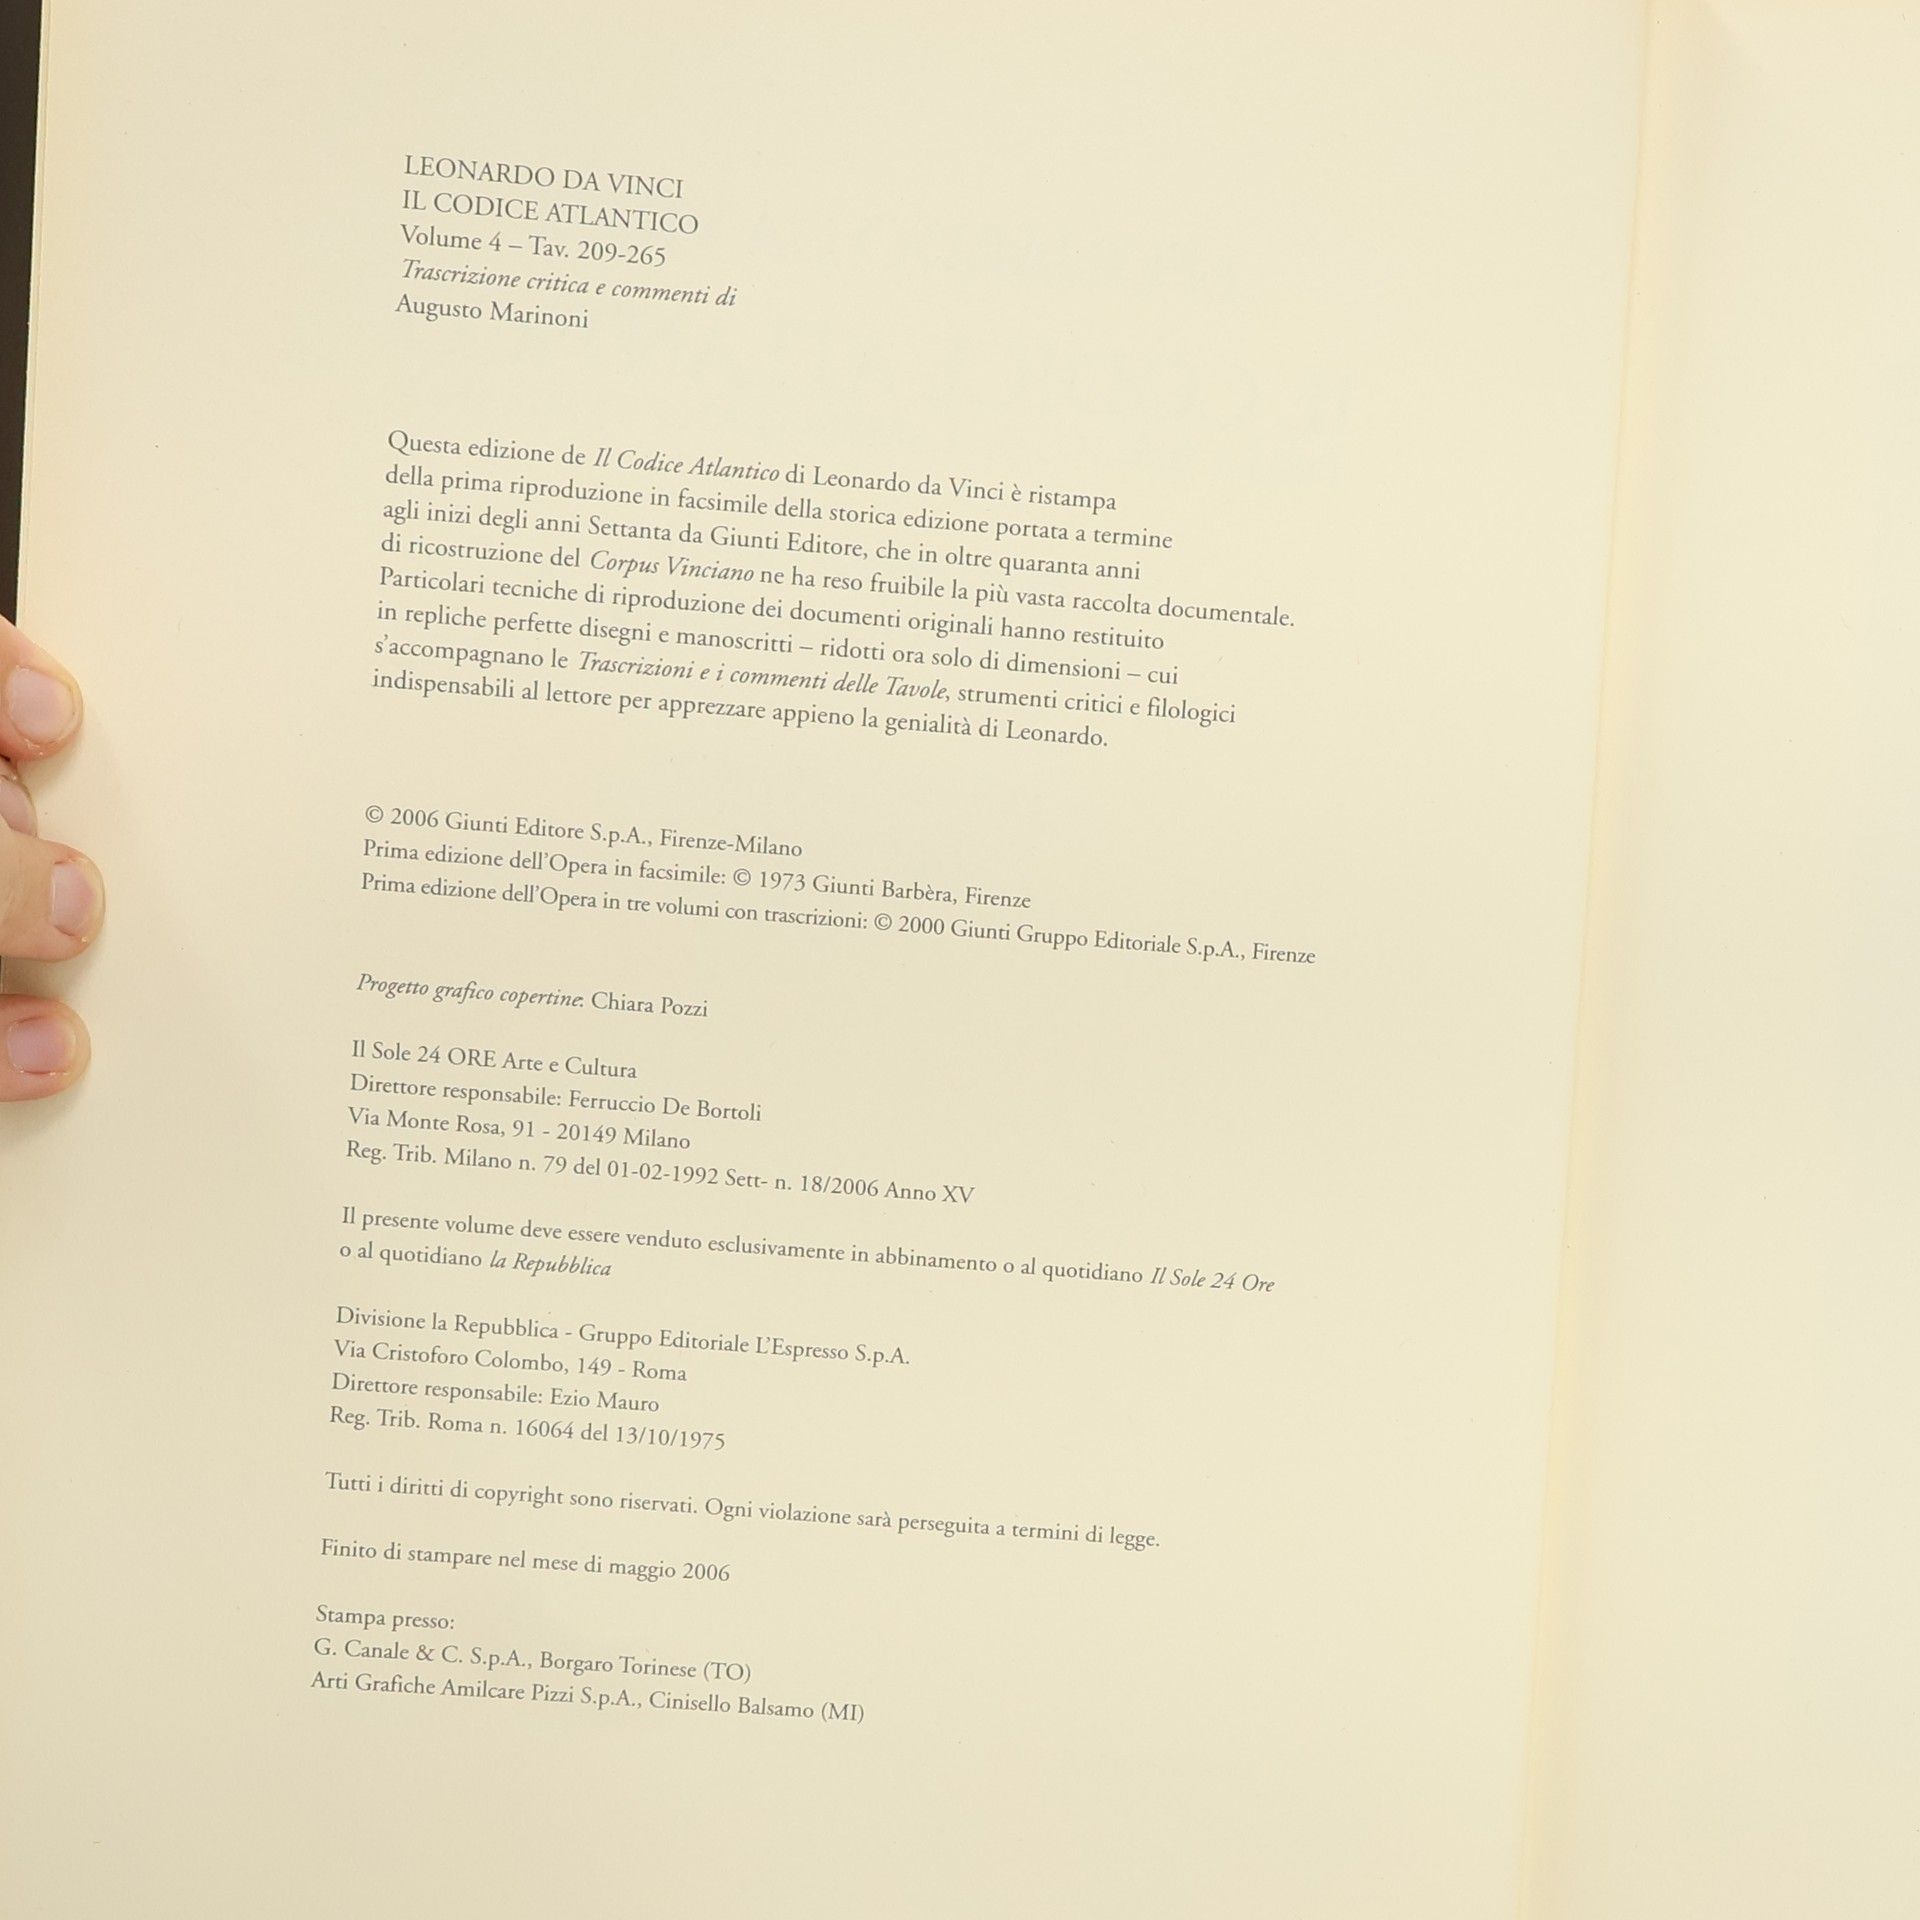 LEONARDO DA VINCI
IL CODICE ATLANTICO
Volume 4 – Tav. 209-265
Trascrizione critica e commenti di
Augusto Marinoni
Questa edizione de Il Codice Atlantico di Leonardo da Vinci è ristampa
della prima riproduzione in facsimile della storica edizione portata a termine
agli inizi degli anni Settanta da Giunti Editore, che in oltre quaranta anni
di ricostruzione del Corpus Vinciano ne ha reso fruibile la più vasta raccolta documentale.
Particolari tecniche di riproduzione dei documenti originali hanno restituito
in repliche perfette disegni e manoscritti – ridotti ora solo di dimensioni – cui
s'accompagnano le Trascrizioni e i commenti delle Tavole, strumenti critici e filologici
indispensabili al lettore per apprezzare appieno la genialità di Leonardo.
© 2006 Giunti Editore S.p.A., Firenze-Milano
Prima edizione dell'Opera in facsimile: © 1973 Giunti Barbèra, Firenze
Prima edizione dell'Opera in tre volumi con trascrizioni: © 2000 Giunti Gruppo Editoriale S.p.A., Firenze
Progetto grafico copertine: Chiara Pozzi
Il Sole 24 ORE Arte e Cultura
Direttore responsabile: Ferruccio De Bortoli
Via Monte Rosa, 91 - 20149 Milano
Reg. Trib. Milano n. 79 del 01-02-1992 Sett- n. 18/2006 Anno XV
Il presente volume deve essere venduto esclusivamente in abbinamento o al quotidiano Il Sole 24 Ore
o al quotidiano la Repubblica
Divisione la Repubblica - Gruppo Editoriale L'Espresso S.p.A.
Via Cristoforo Colombo, 149 - Roma
Direttore responsabile: Ezio Mauro
Reg. Trib. Roma n. 16064 del 13/10/1975
Tutti i diritti di copyright sono riservati. Ogni violazione sarà perseguita a termini di legge.
Finito di stampare nel mese di maggio 2006
Stampa presso:
G. Canale & C. S.p.A., Borgaro Torinese (TO)
Arti Grafiche Amilcare Pizzi S.p.A., Cinisello Balsamo (MI)